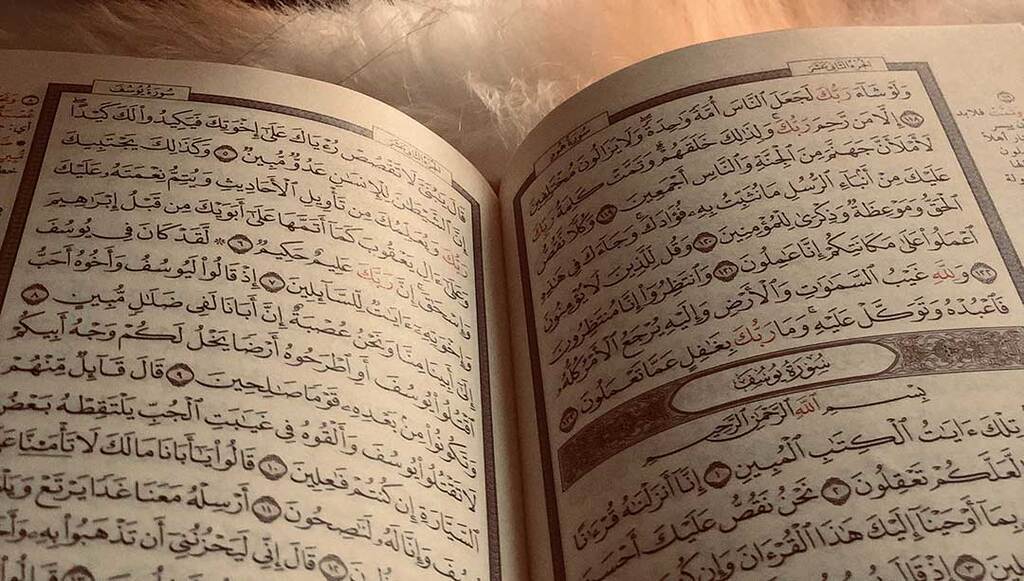 سُورَةُ هُودٍ
الجُزْءُ الثَّانِي عَشَرَ
وَلَوْ شَآءَ رَبُّكَ لَجَعَلَ ٱلنَّاسَ أُمَّةً وَٰحِدَةً ۖ وَلَا يَزَالُونَ مُخْتَلِفِينَ
١١٨ إِلَّا مَن رَّحِمَ رَبُّكَ ۚ وَلِذَٰلِكَ خَلَقَهُمْ ۗ وَتَمَّتْ كَلِمَةُ رَبِّكَ
لَأَمْلَأَنَّ جَهَنَّمَ مِنَ ٱلْجِنَّةِ وَٱلنَّاسِ أَجْمَعِينَ ١١٩ وَكُلًّا نَّقُصُّ
عَلَيْكَ مِنْ أَنۢبَآءِ ٱلرُّسُلِ مَا نُثَبِّتُ بِهِۦ فُؤَادَكَ ۚ وَجَآءَكَ فِى هَٰذِهِ
ٱلْحَقُّ وَمَوْعِظَةٌ وَذِكْرَىٰ لِلْمُؤْمِنِينَ ١٢٠ وَقُل لِّلَّذِينَ لَا يُؤْمِنُونَ
ٱعْمَلُوا۟ عَلَىٰ مَكَانَتِكُمْ إِنَّا عَٰمِلُونَ ١٢١ وَٱنتَظِرُوٓا۟ إِنَّا مُنتَظِرُونَ
١٢٢ وَلِلَّهِ غَيْبُ ٱلسَّمَٰوَٰتِ وَٱلْأَرْضِ وَإِلَيْهِ يُرْجَعُ ٱلْأَمْرُ كُلُّهُۥ
فَٱعْبُدْهُ وَتَوَكَّلْ عَلَيْهِ ۚ وَمَا رَبُّكَ بِغَٰفِلٍ عَمَّا تَعْمَلُونَ ١٢٣
سُورَةُ يُوسُفَ
بِسْمِ ٱللَّهِ ٱلرَّحْمَٰنِ ٱلرَّحِيمِ
تِلْكَ ءَايَٰتُ ٱلْكِتَٰبِ ٱلْمُبِينِ ١ إِنَّآ أَنزَلْنَٰهُ قُرْءَٰنًا
لَّعَلَّكُمْ تَعْقِلُونَ ٢ نَحْنُ نَقُصُّ عَلَيْكَ أَحْسَنَ
بِمَآ أَوْحَيْنَآ إِلَيْكَ هَٰذَا ٱلْقُرْءَانَ وَإِن
٣ إِذْ قَالَ
سُورَةُ يُوسُفَ
الجُزْءُ الثَّانِي عَشَرَ
قَالَ يَٰبُنَىَّ لَا تَقْصُصْ رُءْيَاكَ عَلَىٰٓ إِخْوَتِكَ فَيَكِيدُوا۟ لَكَ كَيْدًا ۖ
إِنَّ ٱلشَّيْطَٰنَ لِلْإِنسَٰنِ عَدُوٌّ مُّبِينٌ ٥ وَكَذَٰلِكَ يَجْتَبِيكَ
رَبُّكَ وَيُعَلِّمُكَ مِن تَأْوِيلِ ٱلْأَحَادِيثِ وَيُتِمُّ نِعْمَتَهُۥ عَلَيْكَ
وَعَلَىٰٓ ءَالِ يَعْقُوبَ كَمَآ أَتَمَّهَا عَلَىٰٓ أَبَوَيْكَ مِن قَبْلُ إِبْرَٰهِيمَ
وَإِسْحَٰقَ ۚ إِنَّ رَبَّكَ عَلِيمٌ حَكِيمٌ ٦ ۞ لَّقَدْ كَانَ فِى يُوسُفَ
وَإِخْوَتِهِۦٓ ءَايَٰتٌ لِّلسَّآئِلِينَ ٧ إِذْ قَالُوا۟ لَيُوسُفُ وَأَخُوهُ أَحَبُّ
إِلَىٰٓ أَبِينَا مِنَّا وَنَحْنُ عُصْبَةٌ إِنَّ أَبَانَا لَفِى ضَلَٰلٍ مُّبِينٍ ٨
ٱقْتُلُوا۟ يُوسُفَ أَوِ ٱطْرَحُوهُ أَرْضًا يَخْلُ لَكُمْ وَجْهُ أَبِيكُمْ
وَتَكُونُوا۟ مِنۢ بَعْدِهِۦ قَوْمًا صَٰلِحِينَ ٩ قَالَ قَآئِلٌ مِّنْهُمْ
لَا تَقْتُلُوا۟ يُوسُفَ وَأَلْقُوهُ فِى غَيَٰبَتِ ٱلْجُبِّ يَلْتَقِطْهُ بَعْضُ
ٱلسَّيَّارَةِ إِن كُنتُمْ فَٰعِلِينَ ١٠ قَالُوا۟ يَٰٓأَبَانَا مَا لَكَ لَا تَأْمَ۫نَّا
يُوسُفَ وَإِنَّا لَهُۥ لَنَٰصِحُونَ ١١ أَرْسِلْهُ مَعَنَا غَدًا يَرْتَعْ
قَالَ إِنِّى لَيَحْزُنُنِىٓ أَن تَذْهَبُوا۟ بِهِۦ